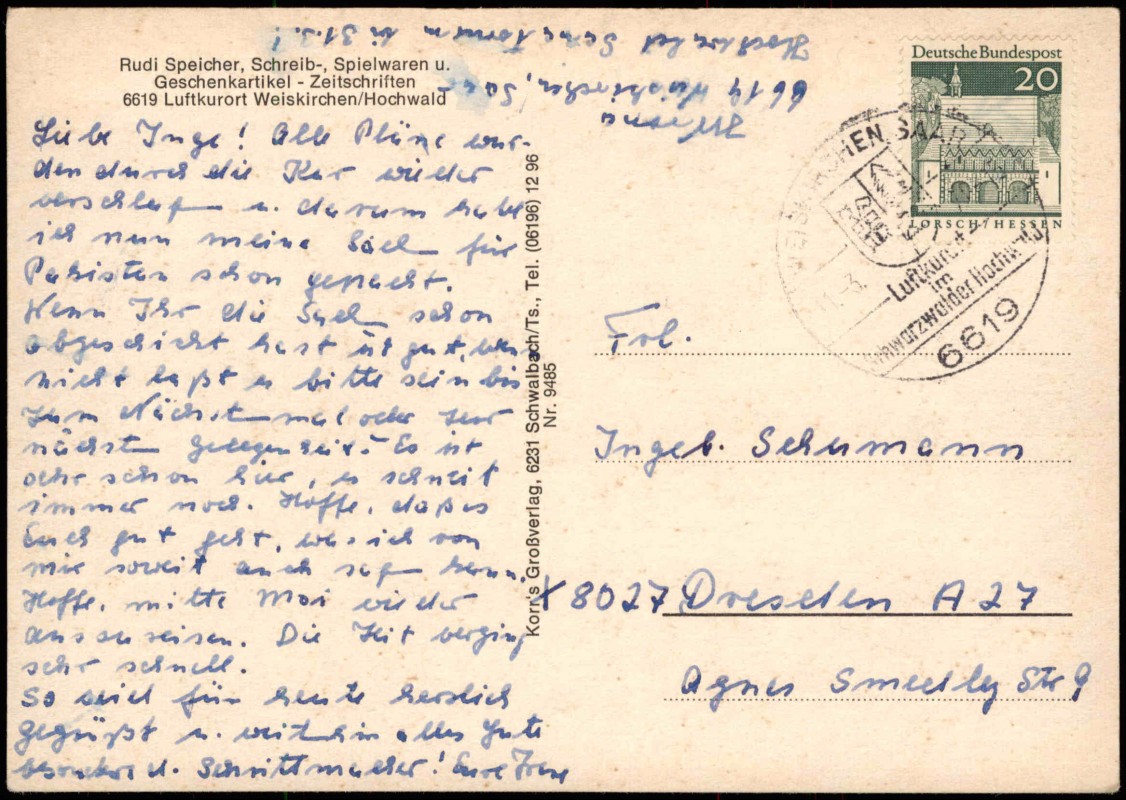 Rudi Speicher, Schreib-, Spielwaren u.
Geschenkartikel - Zeitschriften
6619 Luftkurort Weiskirchen/Hochwald
Liebe Inge! Alle Pläne wur-
den durch die Kur wieder
u. darum habe
ich nun meine Sach für
Pakistan schon gepackt.
Wenn Ihr die Sach schon
abgeschickt habt ist gut, wenn
nicht laßt es bitte sein bis
zum Nächstenmal oder zur
nächsten Gelegenheit! Es ist
sehr schon hier, es schneit
immer noch. Hoffe, daß es
Euch gut geht, was ich von
mir soweit auch sagen kann.
Hoffe, mitte Mai wieder
auszureisen. Die Zeit verging
sehr schnell.
So seid für heute herzlich
gegrüßt u. weiterhin alles Gute
besonders d. Schrittmacher! Eure
6619 Weiskirchen, Saar
Hochwald Sanatorium bis 31.3.!
Korr's Großverlag, 6231 Schwalbach/Ts., Tel. (06196) 12 96
Nr. 9485
Deutsche Bundespost
20
LORSCH/HESSEN
WEISKIRCHEN SAAR
Luftkurort
im
Schwarzwälder Hochwald
6619
Frl.
Ingeb. Schumann
X 8027 Dresden A 27
Agnes Smedly Str 9